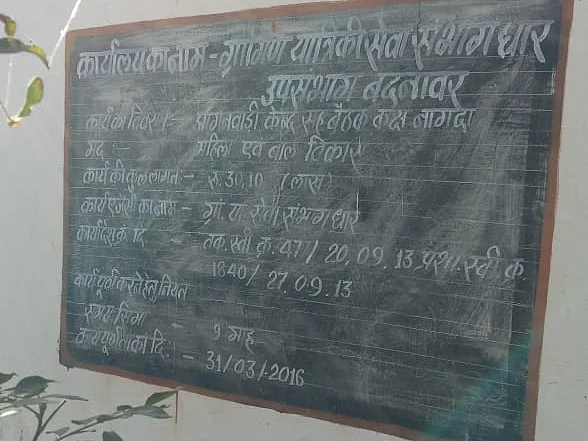 कार्यालय का नाम - ग्रामिण यात्रिकी सेवा संभाग धार
उपसंभाग बदनावर
कार्य का विवरण :- आंगनवाड़ी केन्द्र सह बैठक कक्ष नागदा
मद :- महिला एव बाल विकास
कार्य की कुल लागत :- रु. 30.10 (लाख)
कार्य एजेंसी का नाम - ग्रां. या. सेवा संभाग धार
कार्यादेश क्र. दि. - तक. स्वी. क्र. 47 / 20.09.13 प्रशा. स्वी. क्र.
1840 / 27.09.13
कार्य पूर्ण करने हेतु नियत
समय सिमा - 9 माह
कार्य पूर्णता का दि. :- 31/03/2016